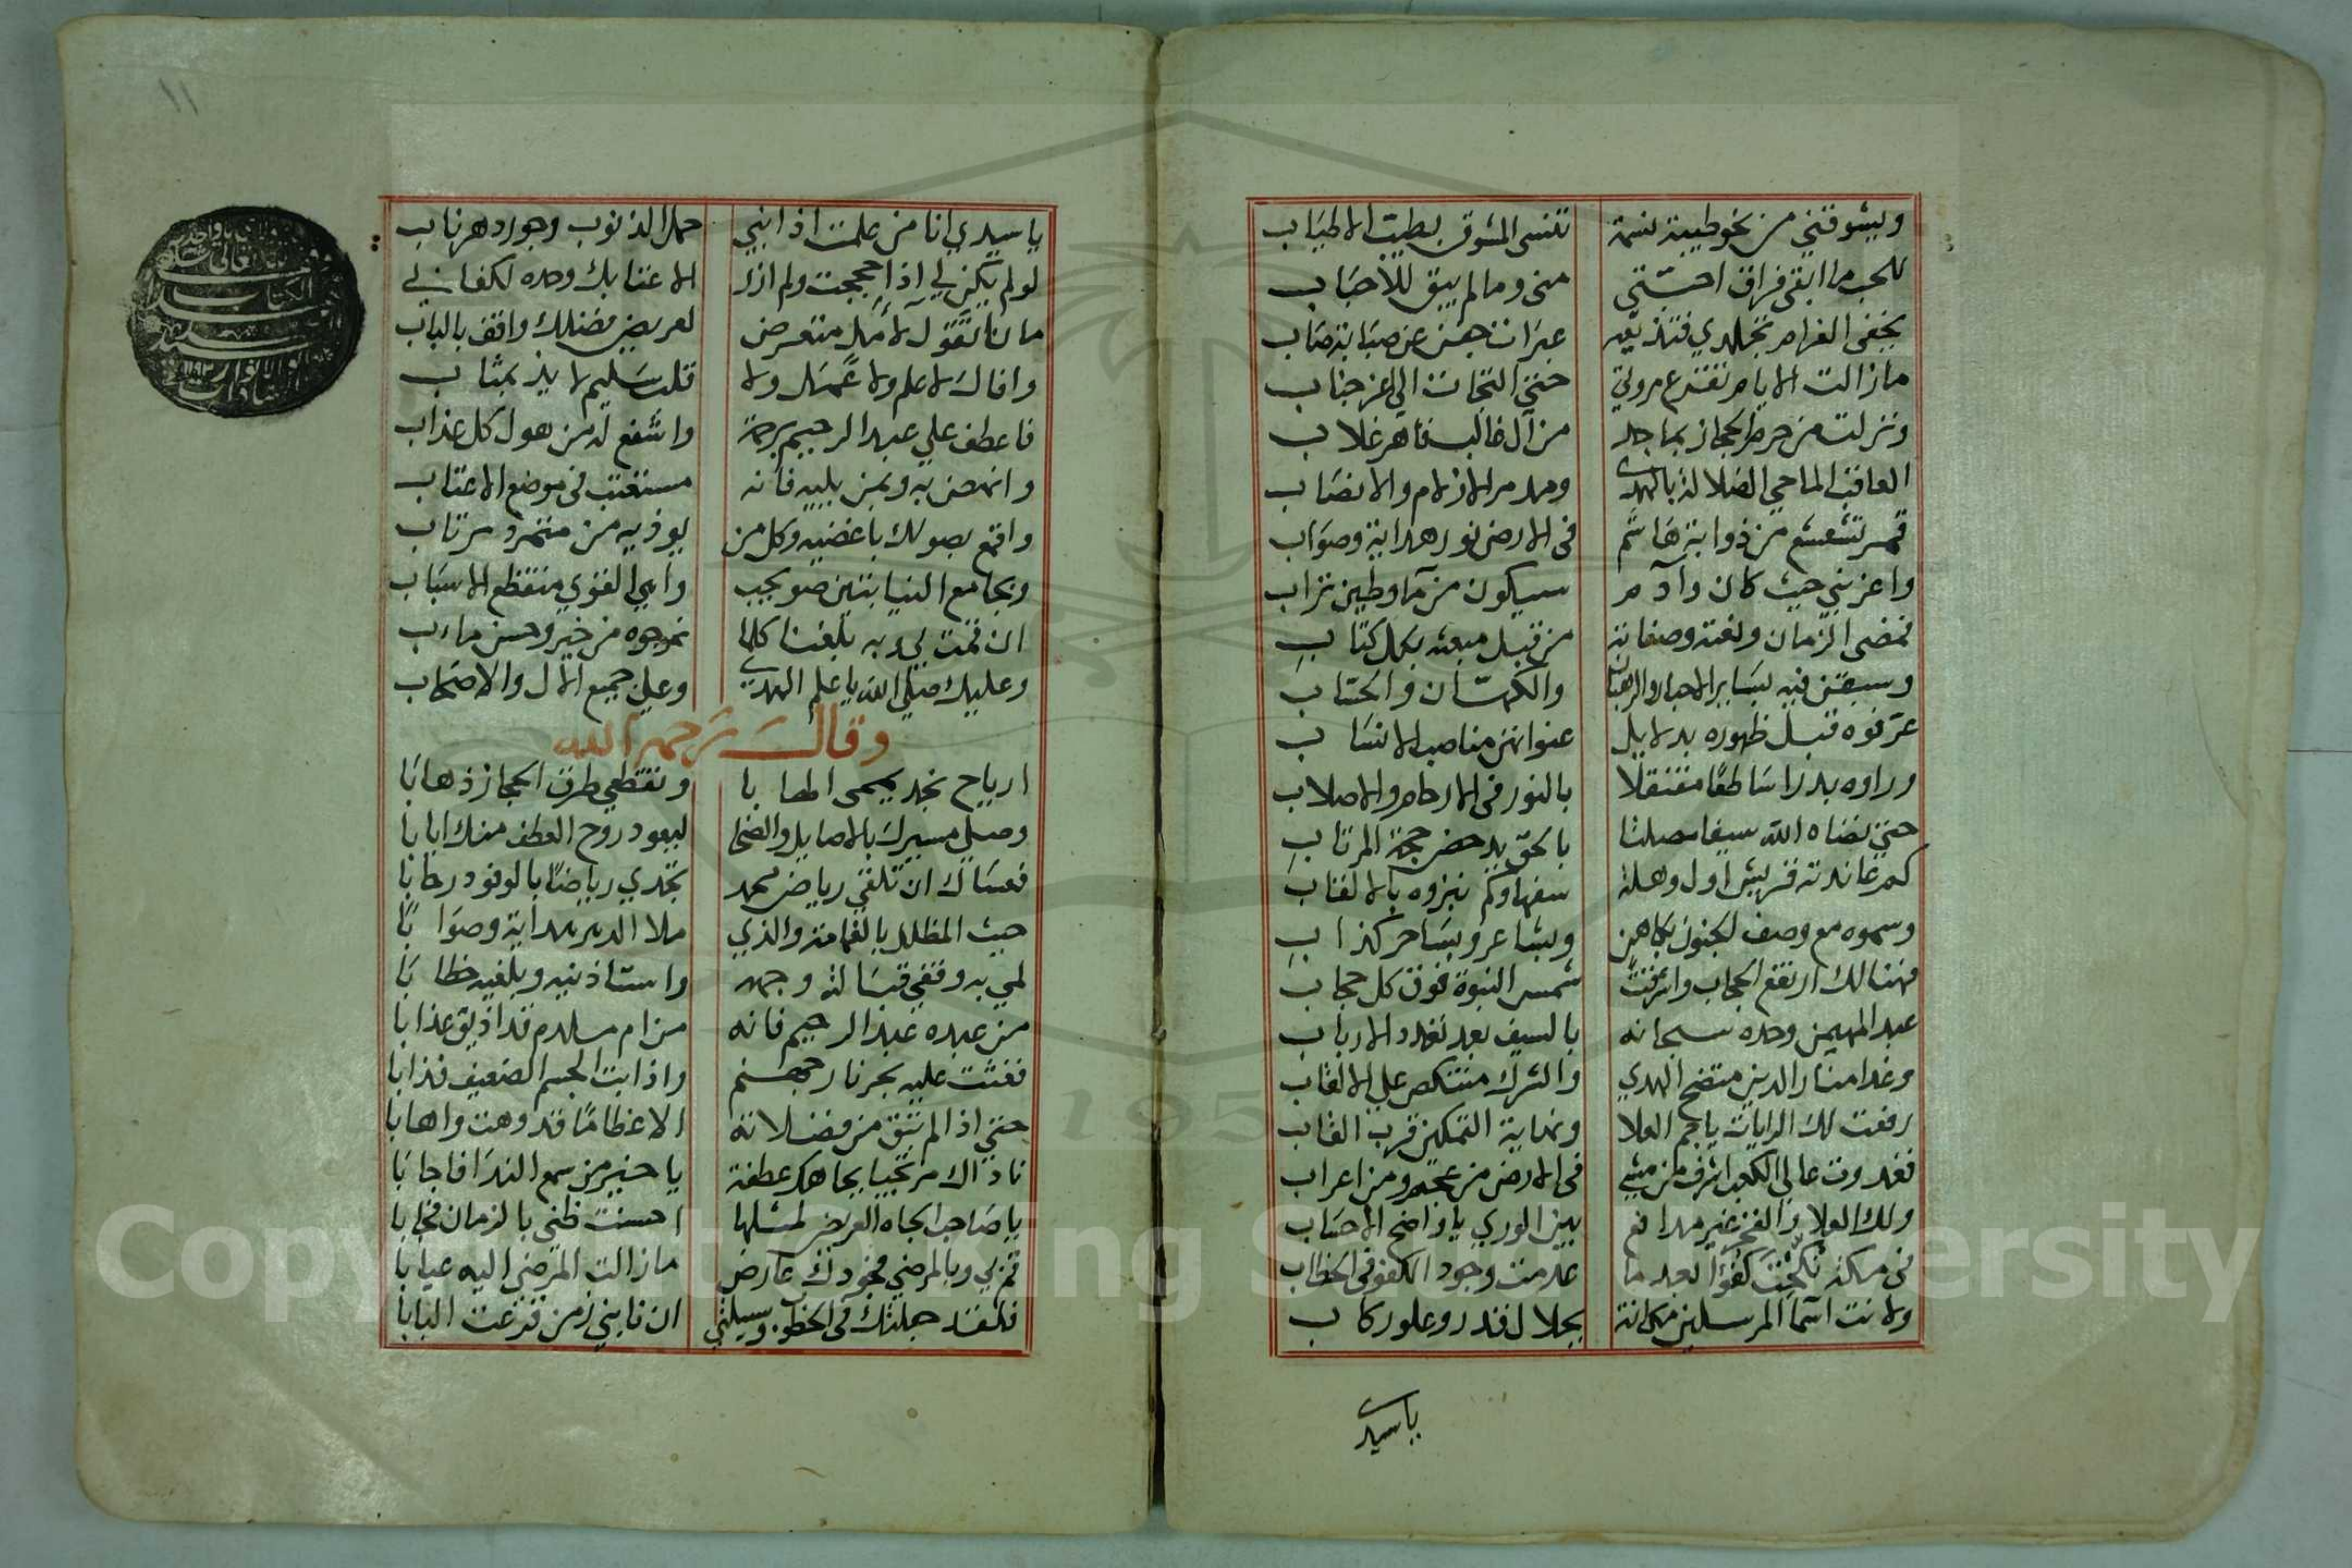 ويشوقني من نحو طيبة نسمة تنسى المشوق بطيب الاطياب
للحب ما ابقى فراق احبتي مني وما لم يبق للأحباب
يخفى الغرام تجلدي فتذيعه عبرات جفن عن صبابة صاب
مازالت الايام تقترع مروتي حتى التجات الي اعز جناب
ونزلت من حرم الحجاز بماجد من آل غالب قاهر غلاب
العاقب الماحي الضلالة بالهدى ومدمر الازلام والانصاب
قمر تشعشع من ذوابة هاشم في الارض نور هداية وصواب
واعز نبي حيث كان وآدم سيكون من مآ وطين تراب
فمضى الزمان ونعته وصفاته من قبل مبعثه بكل كتاب
وسبقن فيه بسائر الاحبار والرهبان والكهان والحتاب
عرفوه قبل ظهوره بدلايل عنوانهن مناصب الانساب
وراوه بدرا ساطعا متنقلا بالنور في الارحام والاصلاب
حتى نضاه الله سيفا مصلتا بالحق يدحض حجة المرتاب
كم عاندته قريش اول وهلة سفها وكم نبزوه بالالقاب
وسموه مع وصف الجنون بكاهن وبشاعر وبساحر كذاب
فهنالك ارتفع الحجاب واشرقت شمس النبوة فوق كل حجاب
عبد المهيمن وحده سبحانه بالسيف بعد تعدد الارباب
وغدا منار الدين متضح الهدي والشرك منتكص علي الاعقاب
رفعت لك الرايات يا نجم العلا ونهاية التمكين قرب القاب
فغدوت عالي الكعب اشرف من مشى في الارض من عجم ومن اعراب
ولك العلا والفخر غير مدافع بين الوري يا واضح الاحساب
في مكنة نكحت كفؤا بعد ما عدمت وجود الكفو في الخطاب
ولانت اسما المرسلين مكانة بجلال قدر وعلو ركاب
ياسيدي
١١
ياسيدي انا من علمت اذ ابني حمل الذنوب وجور دهر ناب
لو لم يكن لي اذ حججت ولم ازر الا عتابك وحده لكفاني
ماذا تقول لآمل متعرض لعريض فضلك واقف بالباب
وافاك لا علم ولا عمل ولا قلب سليم لايذ بمثاب
فاعطف علي عبد الرحيم برحمة واشفع له من هول كل عذاب
وانهض به وبمن يليه فانه مستعتب في موضع الاعتاب
واقمع بصولك باغضيه وكل من يوذيه من متمرد مرتاب
وبجامع النيابتين صو يجب واهي القوي منقطع الاسباب
ان قمت لي وبه بلغنا كلما نرجوه من خير وحسن ماب
وعليك صلى الله يا علم الهدى وعلى جميع الآل والاصحاب
وقال رحمه الله
ارياح نجد يممى اطنابا وتقطعي طرق الحجاز ذهابا
وصلي مسيرك بالاصايل والضحا ليعود روح العطف منك ايابا
فعساك ان تلقي رياض محمد تجدي رياضا بالوفود رحابا
حيث المظلل بالغمامة والذي ملا الدهر هداية وصوابا
لمي به وقفي قبالة وجهه واستاذنيه وبلغيه خطابا
من عبده عبد الرحيم فانه من ام ملدم قد اذيق عذابا
فغشت عليه بحر نار جهنم واذابت الجسم الضعيف فذابا
حتى اذا لم تبق من فضلاته الا عظاما قد وهت واهابا
ناداك مرتجيا بجاهك عطفة يا خير من سمع الندا فاجابا
يا صاحب الجاه العريض لمثلها احسنت ظني بالزمان فخابا
قم بي وبالمرضى فجودك عارض مازالت المرضى اليه عيابا
فلقد جعلتك في الخطوب وسيلتي ان نابني زمن قرعت البابا
Copyright King Saud University
195